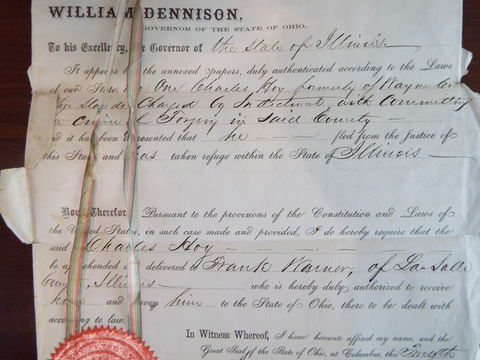 WILLIAM DENNISON,
GOVERNOR OF THE STATE OF OHIO.
To his Excellency, the Governor of the State of Illinois
It appears by the annexed papers, duly authenticated according to the Laws
of our State, that One Charles Hoy formerly of Wayne Co
Charged by Indictment, with Committing
Crime of Forgery in Said County
and it has been represented that he fled from the justice of
this State, and has taken refuge within the State of Illinois
Now Therefore, Pursuant to the provisions of the Constitution and Laws of
the United States, in such case made and provided, I do hereby require that the
said Charles Hoy
be apprehended and delivered to Frank Warner, of La Salle
County, Illinois who is hereby duly authorized to receive
him and convey him to the State of Ohio, there to be dealt with
according to law.
In Witness Whereof, I have hereunto affixed my name, and the
Great Seal of the State of Ohio, at Columbus, this